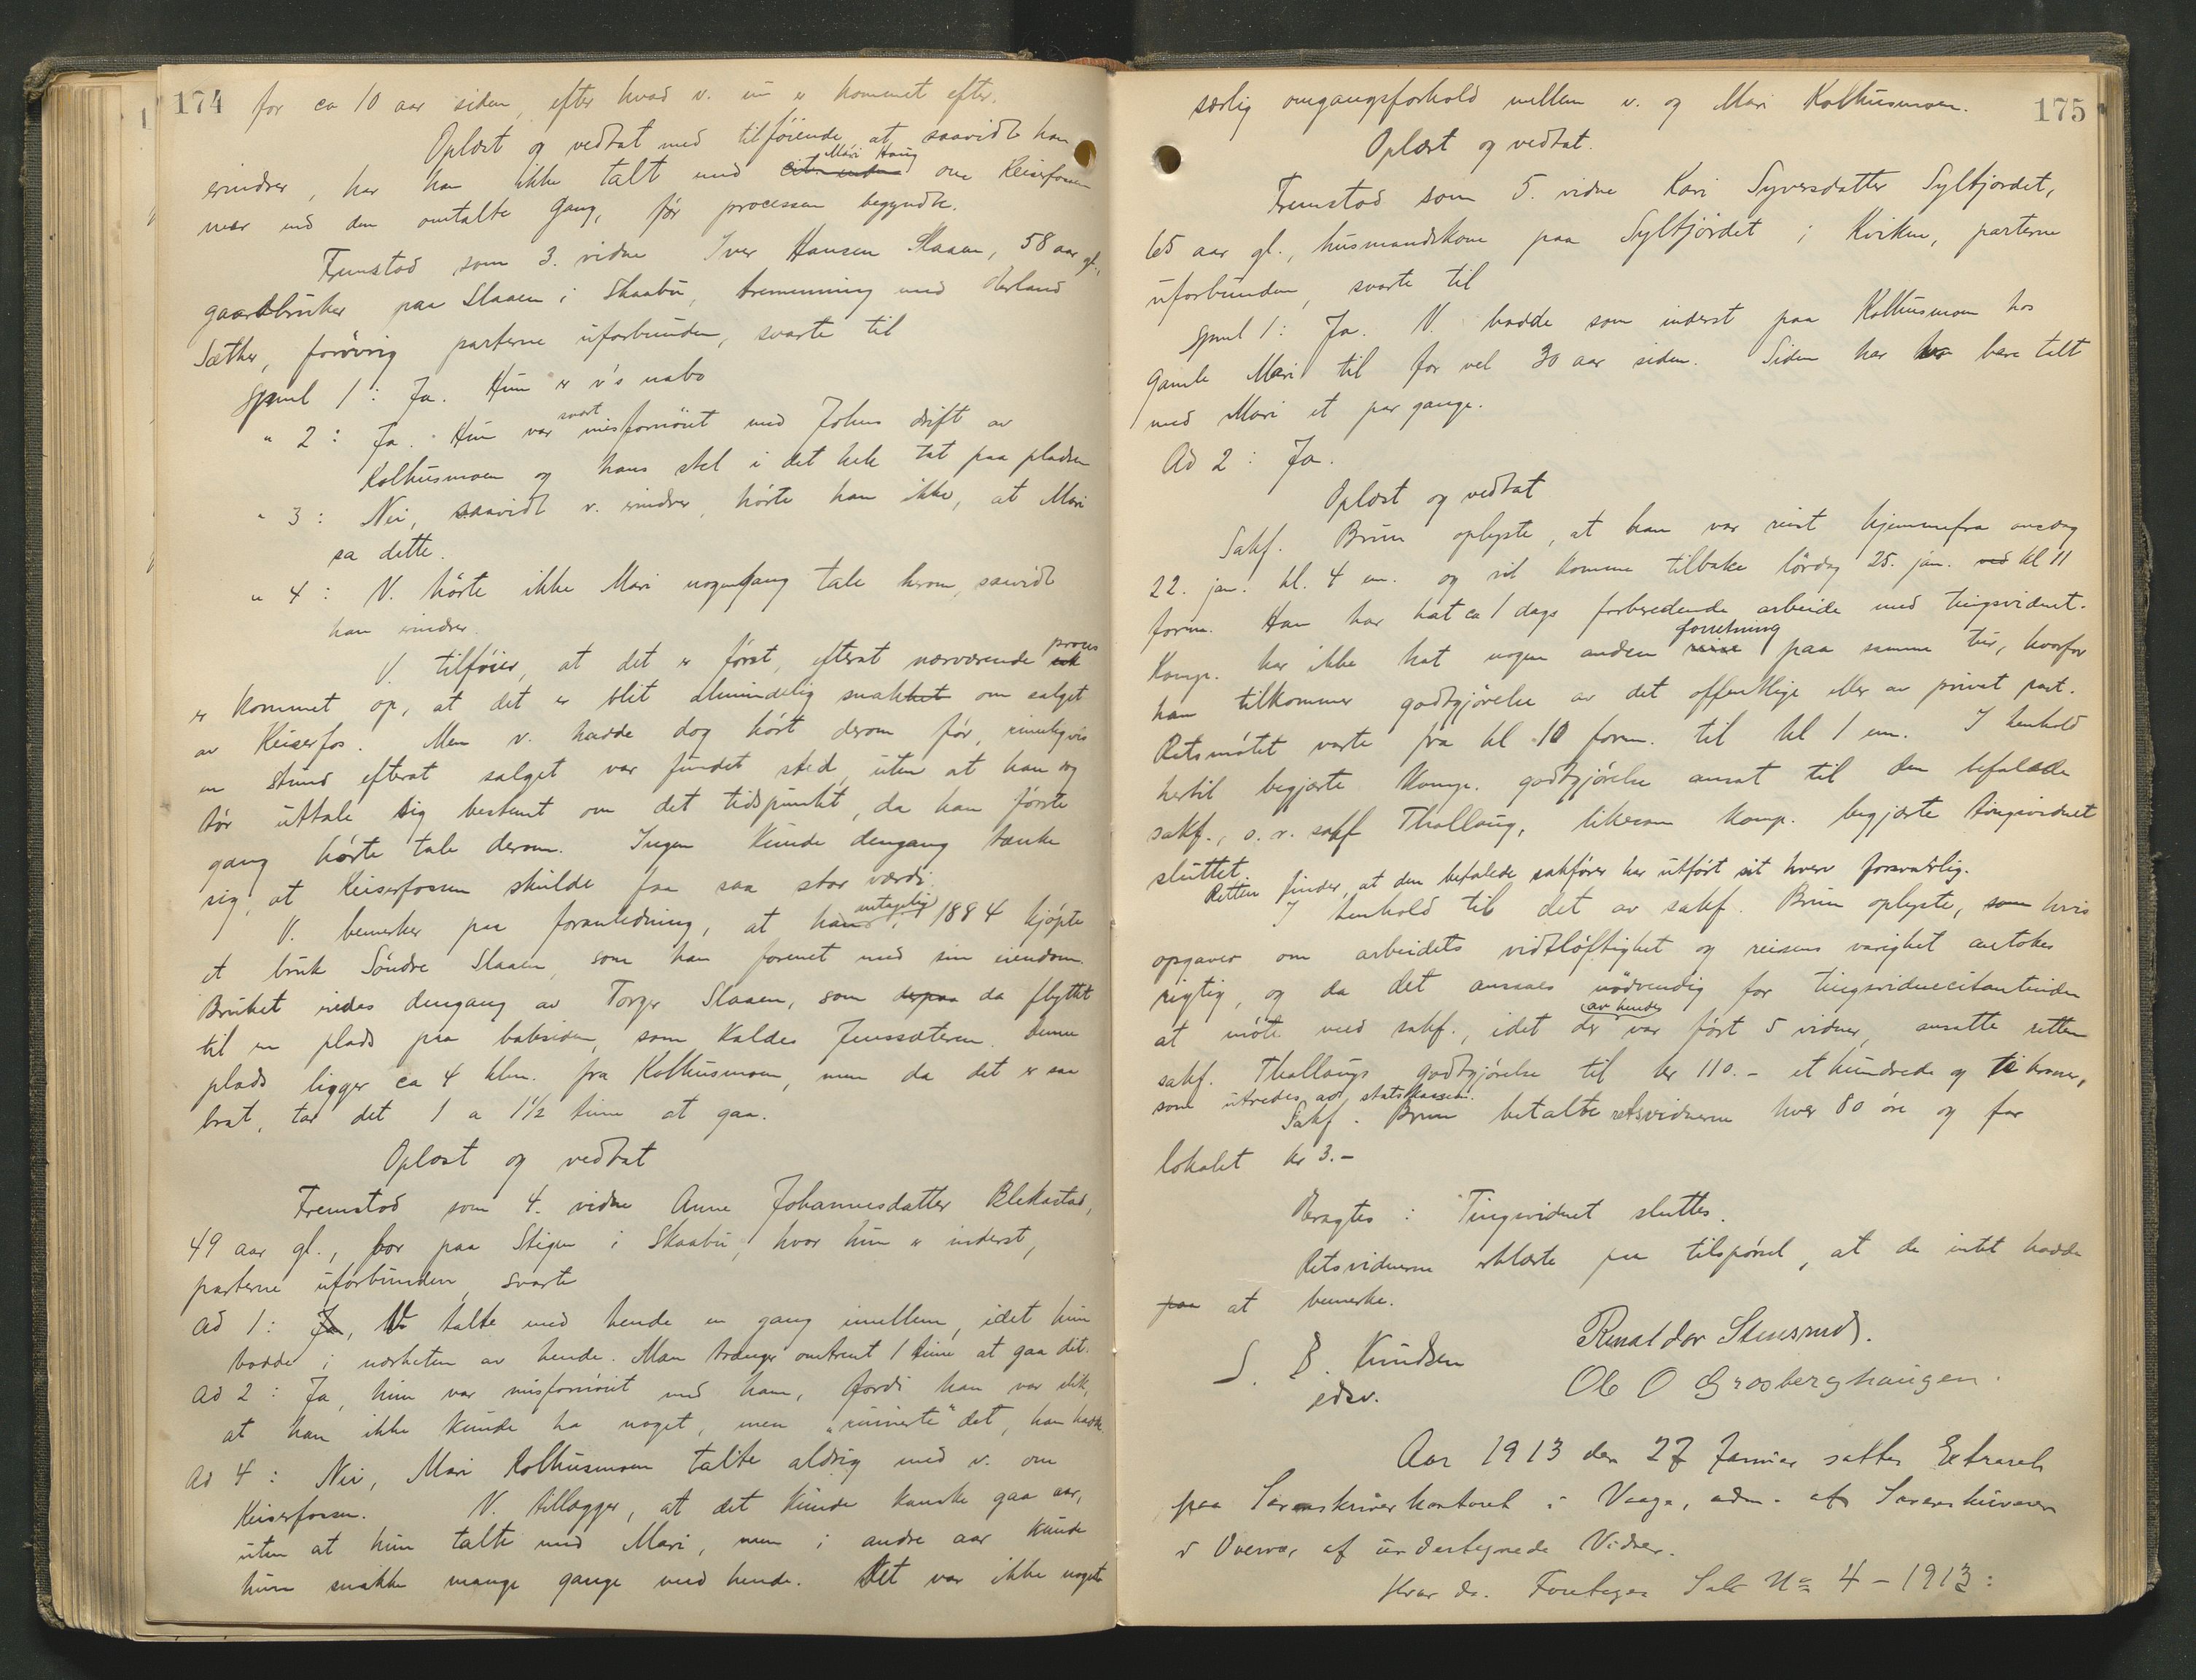 174
for ca 10 aar siden, efter hvad v. nu er kommet efter.
Oplæst og vedtat med tilføiende, at saavidt han
erindrer, har han ikke talt med Mari Haug om Keiserfossen
mer end den omtalte gang, før processen begyndte.
Fremstod som 3. vidne Iver Hansen Slaaen, 58 aar gl.,
gaardbruker paa Slaaen i Skaabu, tremenning med Erland
Sæther, forøvrig parterne uforbunden, svarte til
Spml 1: Ja. Hun er v's nabo
" 2: Ja. Hun var svært misfornøiet med Johns drift av
Kolhusmoen og hans stel i det hele tat paa pladsen
" 3: Nei, saavidt v. erindrer, hørte han ikke, at Mari
sa dette.
" 4: V. hørte ikke Mari nogengang tale herom, saavidt
han erindrer.
V. tilføier, at det er først, efterat nærværende proces
er kommet op, at det er blit almindelig snak om salget
av Keiserfos. Men v. hadde dog hørt derom før, rimeligvis
en stund efterat salget var fundet sted, uten at han dog
tør uttale sig bestemt om det tidspunkt, da han første
gang hørte tale derom. Ingen kunde dengang tænke
sig, at Keiserfossen skulde faa saa stor værdi
V. bemerker paa foranledning, at han antagelig i 1884 kjøpte
et bruk Søndre Slaaen, som han forenet med sin eiendom.
Bruket eiedes dengang av Torger Slaaen, som derpaa da flyttet
til en plads paa baksiden, som kaldes Jenssæteren. Denne
plads ligger ca 4 klm. fra Kolhusmoen, men da det er saa
brat, tar det 1 a 1½ time at gaa.
Oplæst og vedtat
Fremstod som 4. vidne Anne Johannesdatter Blekastad,
49 aar gl., bor paa Stigen i Skaabu, hvor hun er inderst,
parterne uforbunden, svarte
Ad 1: Ja, V. talte med hende en gang imellem, idet hun
bodde i nærheten av hende. Man trænger omtrent 1 time at gaa dit.
Ad 2: Ja, hun var misfornøiet med ham, fordi han var slik,
at han ikke kunde ha noget, men "ruinerte" det, han hadde.
Ad 4: Nei, Mari Kolhusmoen talte aldrig med v. om
Keiserfossen. V. tillægger, at det kunde kanske gaa aar,
uten at hun talte med Mari, men i andre aar kunde
hun snakke mange gange med hende. Det var ikke noget
175
særlig omgangsforhold mellem v. og Mari Kolhusmoen.
Oplæst og vedtat.
Fremstod som 5. vidne Kari Syversdatter Syltfjordet,
65 aar gl., husmandskone paa Syltfjørdet i Kvikne, parterne
uforbunden, svarte til
Spml 1: Ja. V. bodde som inderst paa Kolhusmoen hos
gamle Mari til for vel 30 aar siden. Siden har hun bare talt
med Mari et par gange.
Ad 2: Ja.
Oplæst og vedtat
Sakf. Brun oplyste, at han var reist hjemmefra onsdag
22. jan. kl. 4 em. og vil komme tilbake lørdag 25. jan. ved kl 11
form. Han har hat ca 1 dags forberedende arbeide med tingsvidnet.
Komp. har ikke hat nogen anden forretning paa samme tur, hvorfor
han tilkommer godtgjørelse av det offentlige eller av privat part.
Retsmøtet varte fra kl 10 form. til kl 1 em. I henhold
hertil begjærte komp. godtgjørelse ansat til den befalede
sakf., o.r. sakf Thallaug, likesom komp. begjærte tingsvidnet
sluttet.
Retten finder, at den befalede sakfører har utført sit hverv forsvarlig.
I henhold til det av sakf. Brun oplyste, som hvis
opgaver om arbeidets vidtløftighet og reisens varighet antokes
rigtig, og da det ansaaes nødvendig for tingsvidnecitantinden
at møte med sakf., idet der av hende var ført 5 vidner, ansatte retten
sakf. Thallaugs godtgjørelse til kr 110.- et hundrede og ti kroner,
som utredes av statskassen.
Sakf. Brun betalte retsvidnerne hver 80 øre og for
lokalet kr 3.-
Eragtes: Tingsvidnet sluttes.
Retsvidnerne erklærte paa tilspørsel, at de intet hadde
paa at bemerke.
S. B. Knudsen
edsv.
Renaldor Stensrud.
Ole O Grosberghaugen.
Aar 1913 den 27 Januar sattes Extraret
paa Sorenskriverkontoret i Vaage, adm. af Sorenskriveren
i Overvær af undertegnede Vidner.
Hvor da. Foretoges Sak No 4 - 1913: